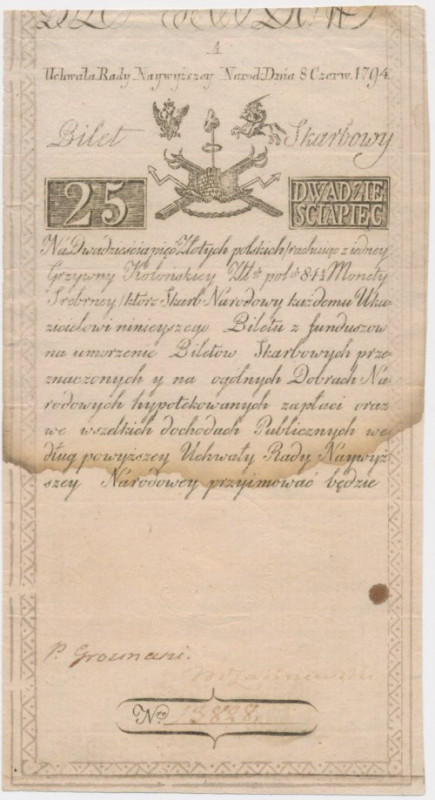 A
Uchwała Rady Naywyższey Narod: Dnia 8 Czerw. 1794.
Bilet Skarbowy
25
DWADZIE
ŚCIAPIĘĆ
Na Dwadzieścia pięć Złotych polskich / rachuiąc z iedney
Grzywny Kolońskiey Złt. pol. 84½ Monety
Srebrney / które Skarb Narodowy każdemu Uka-
zicielowi ninieyszego Biletu z funduszow
na umorzenie Biletów Skarbowych prze-
znaczonych y na ogólnych Dobrach Na-
rodowych hypotekowanych zapłaci oraz
we wszelkich dochodach Publicznych we-
dług powyższey Uchwały Rady Naywyż-
szey Narodowey przyimować będzie
P. Grozmani.
Nro 13828